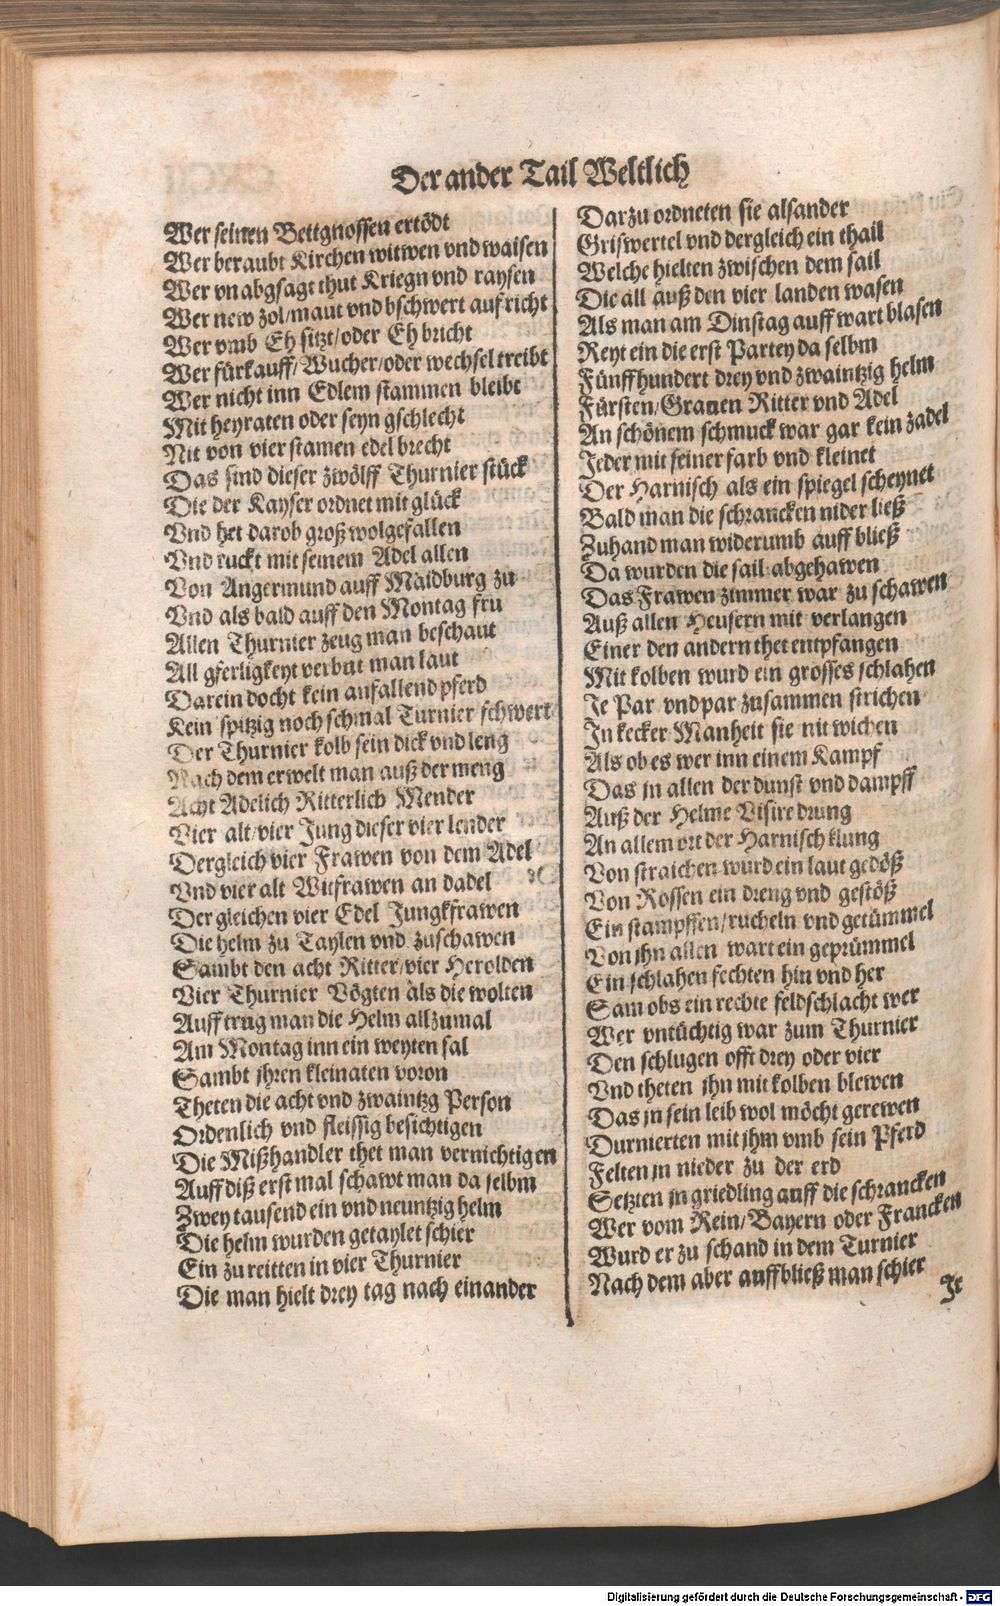 Der ander Tail Weltlich
Wer seinen Bettgnossen ertödt
Wer beraubt Kirchen witwen vnd waisen
Wer vnabgsagt thut Kriegn vnd raysen
Wer new zol/maut vnd bschwert auf richt
Wer vmb Eh sitzt/oder Eh bricht
Wer fürkauff/Wucher/oder wechsel treibt
Wer nicht inn Edlem stammen bleibt
Mit heyraten oder seyn gschlecht
Nit von vier stamen edel brecht
Das sind dieser zwölff Thurnier stück
Die der Kayser ordnet mit glück
Vnd het darob groß wolgefallen
Vnd ruckt mit seinem Adel allen
Von Angermund auff Maidburg zu
Vnd als bald auff den Montag fru
Allen Thurnier zeug man beschaut
All gferligkeyt verbut man laut
Darein docht kein anfallend pferd
Kein spitzig noch schmal Turnier schwert
Der Thurnier kolb sein dick vnd leng
Nach dem erwelt man auß der meng
Acht Adelich Ritterlich Mender
Vier alt/vier Jung dieser vier lender
Dergleich vier Frawen von dem Adel
Vnd vier alt Witfrawen an dadel
Der gleichen vier Edel Jungkfrawen
Die helm zu Taylen vnd zuschawen
Sambt den acht Ritter/vier Herolden
Vier Thurnier Vögten als die wolten
Auff trug man die Helm allzumal
Am Montag inn ein weyten sal
Sambt jhren kleinaten voron
Theten die acht vnd zwaintzg Person
Ordenlich vnd fleissig besichtigen
Die Mißhandler thet man vernichtigen
Auff diß erst mal schawt man da selbm
Zwey tausend ein vnd neuntzig helm
Die helm wurden getaylet schier
Ein zu reitten in vier Thurnier
Die man hielt drey tag nach einander
Darzu ordneten sie alsander
Griswertel vnd dergleich ein thail
Welche hielten zwischen dem sail
Die all auß den vier landen wasen
Als man am Dinstag auff wart blasen
Reyt ein die erst Partey da selbm
Fünffhundert drey vnd zwaintzig helm
Fürsten/Grauen Ritter vnd Adel
An schönem schmuck war gar kein zadel
Jeder mit seiner farb vnd kleinet
Der Harnisch als ein spiegel scheynet
Bald man die schrancken nider ließ
Zuhand man widerumb auff bließ
Da wurden die sail abgehawen
Das Frawen zimmer war zu schawen
Auß allen Heusern mit verlangen
Einer den andern thet entpfangen
Mit kolben wurd ein grosses schlahen
Je Par vnd par zusammen strichen
In kecker Manheit sie nit wichen
Als ob es wer inn einem Kampf
Das jn allen der dunst vnd dampff
Auß der Helme Visire drung
An allem ort der Harnisch klung
Von straichen wurd ein laut gedöß
Von Rossen ein dreng vnd gestöß
Ein stampffen/rucheln vnd getümmel
Von jhn allen wart ein geprümmel
Ein schlahen fechten hin vnd her
Sam obs ein rechte feldschlacht wer
Wer vntüchtig war zum Thurnier
Den schlugen offt drey oder vier
Vnd theten jhn mit kolben blewen
Das jn sein leib wol möcht gerewen
Durnierten mit jhm vmb sein Pferd
Felten jn nieder zu der erd
Setzten jn griedling auff die schrancken
Wer vom Rein/Bayern oder Francken
Wurd er zu schand in dem Turnier
Nach dem aber auffbließ man schier
Je
Digitalisierung gefördert durch die Deutsche Forschungsgemeinschaft - DFG